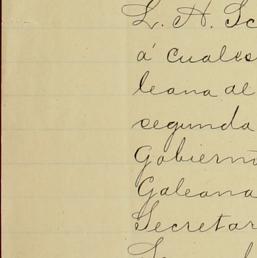 L. A. Sc
á cuales
leana de
segunda
Gobierno
Galeana
Secretar